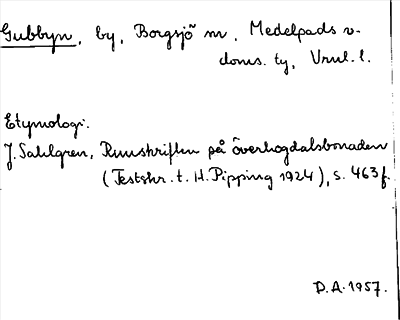 Gubbyn, by, Borgsjö sn, Medelpads v.
doms. tg, Vnrl. l.
Etymologi.
J. Sahlgren, Runskriften på överhogdalsbonaden
(Festskr. t. H. Pipping 1924), s. 463 f.
D.A. 1957.